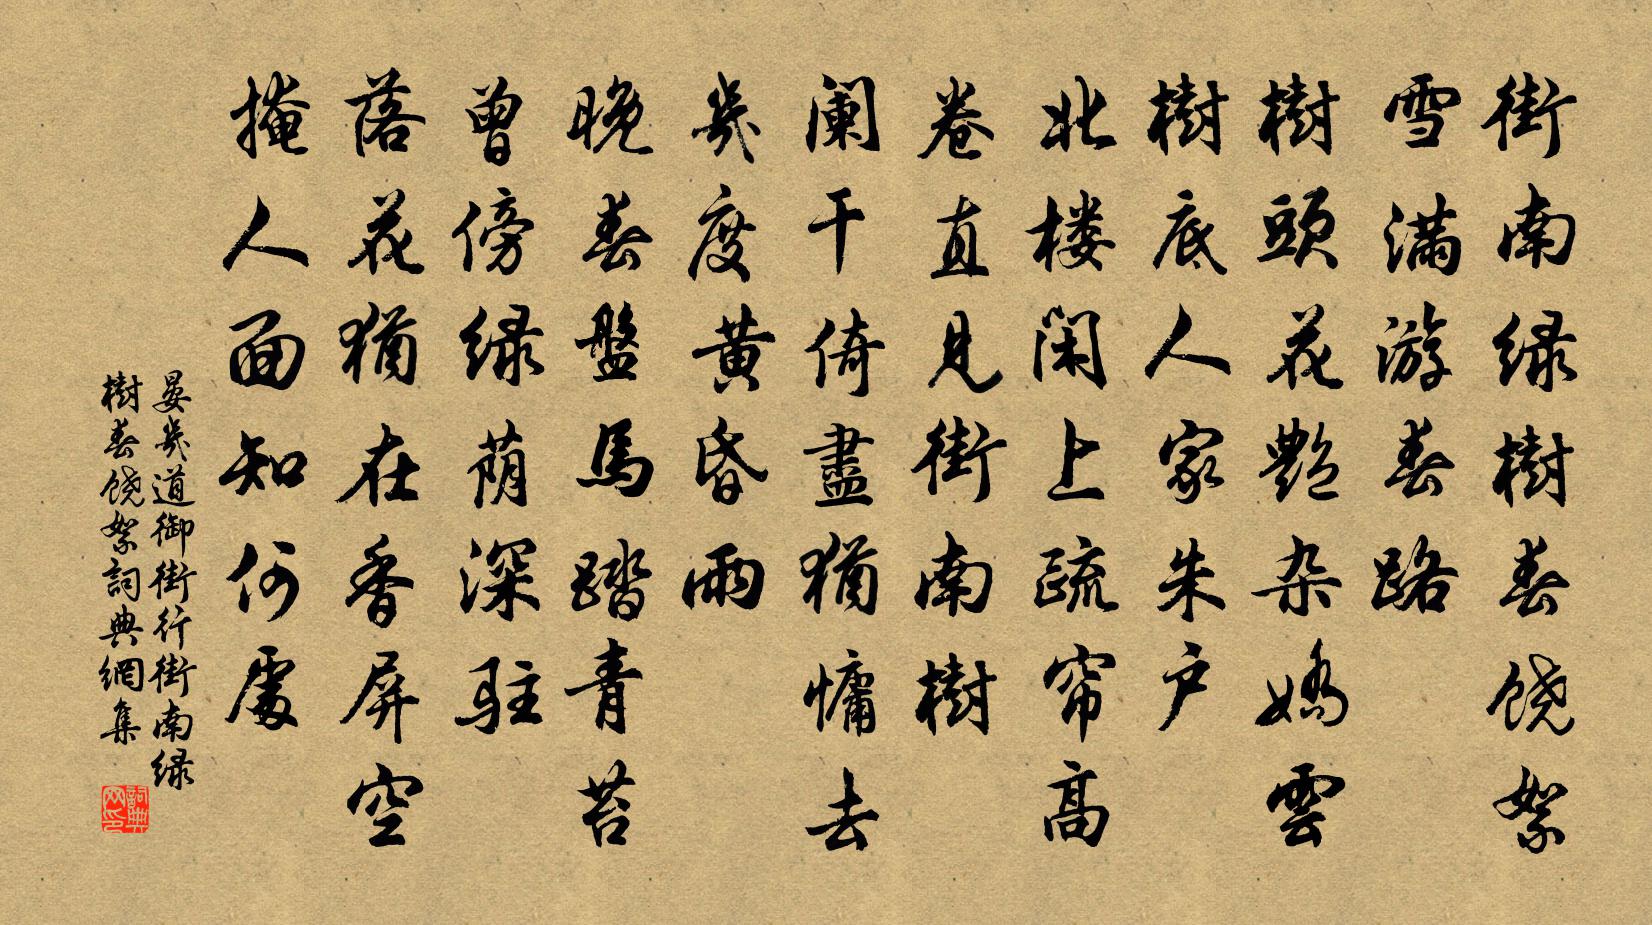 街南绿樹春饶絮
雪满游春路
樹頭花艶杂嬌雲
樹底人家朱户
北楼闲上疏帘高
卷直見街南樹
阑干倚盡猶慵去
幾度黄昏雨
晚春盤馬踏青苔
曾傍绿荫深駐
落花猶在香屏空
掩人面知何處
晏幾道御街行街南绿
樹春饶絮詞典網集
詞典网印